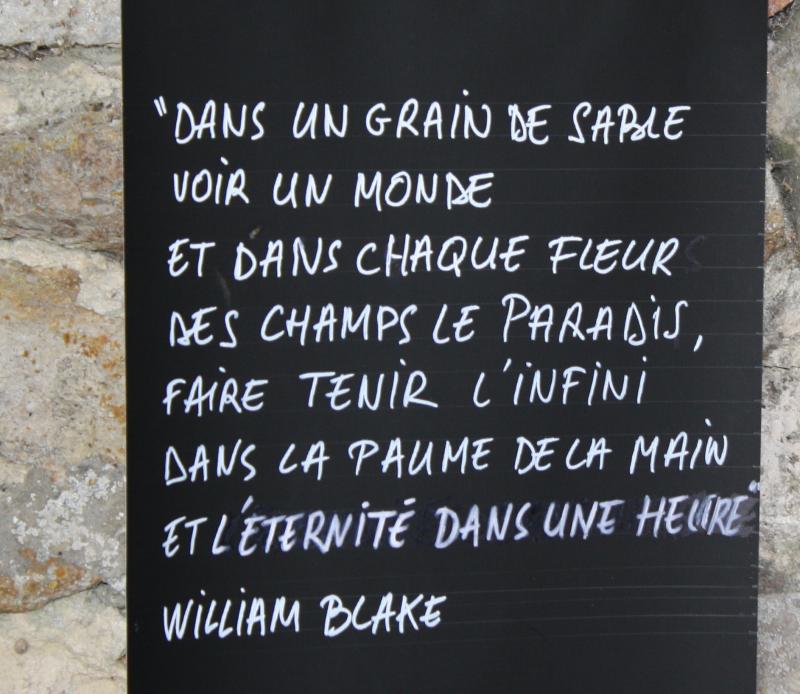 "DANS UN GRAIN DE SABLE
VOIR UN MONDE
ET DANS CHAQUE FLEUR
DES CHAMPS LE PARADIS,
FAIRE TENIR L'INFINI
DANS LA PAUME DE LA MAIN
ET L'ÉTERNITÉ DANS UNE HEURE"
WILLIAM BLAKE